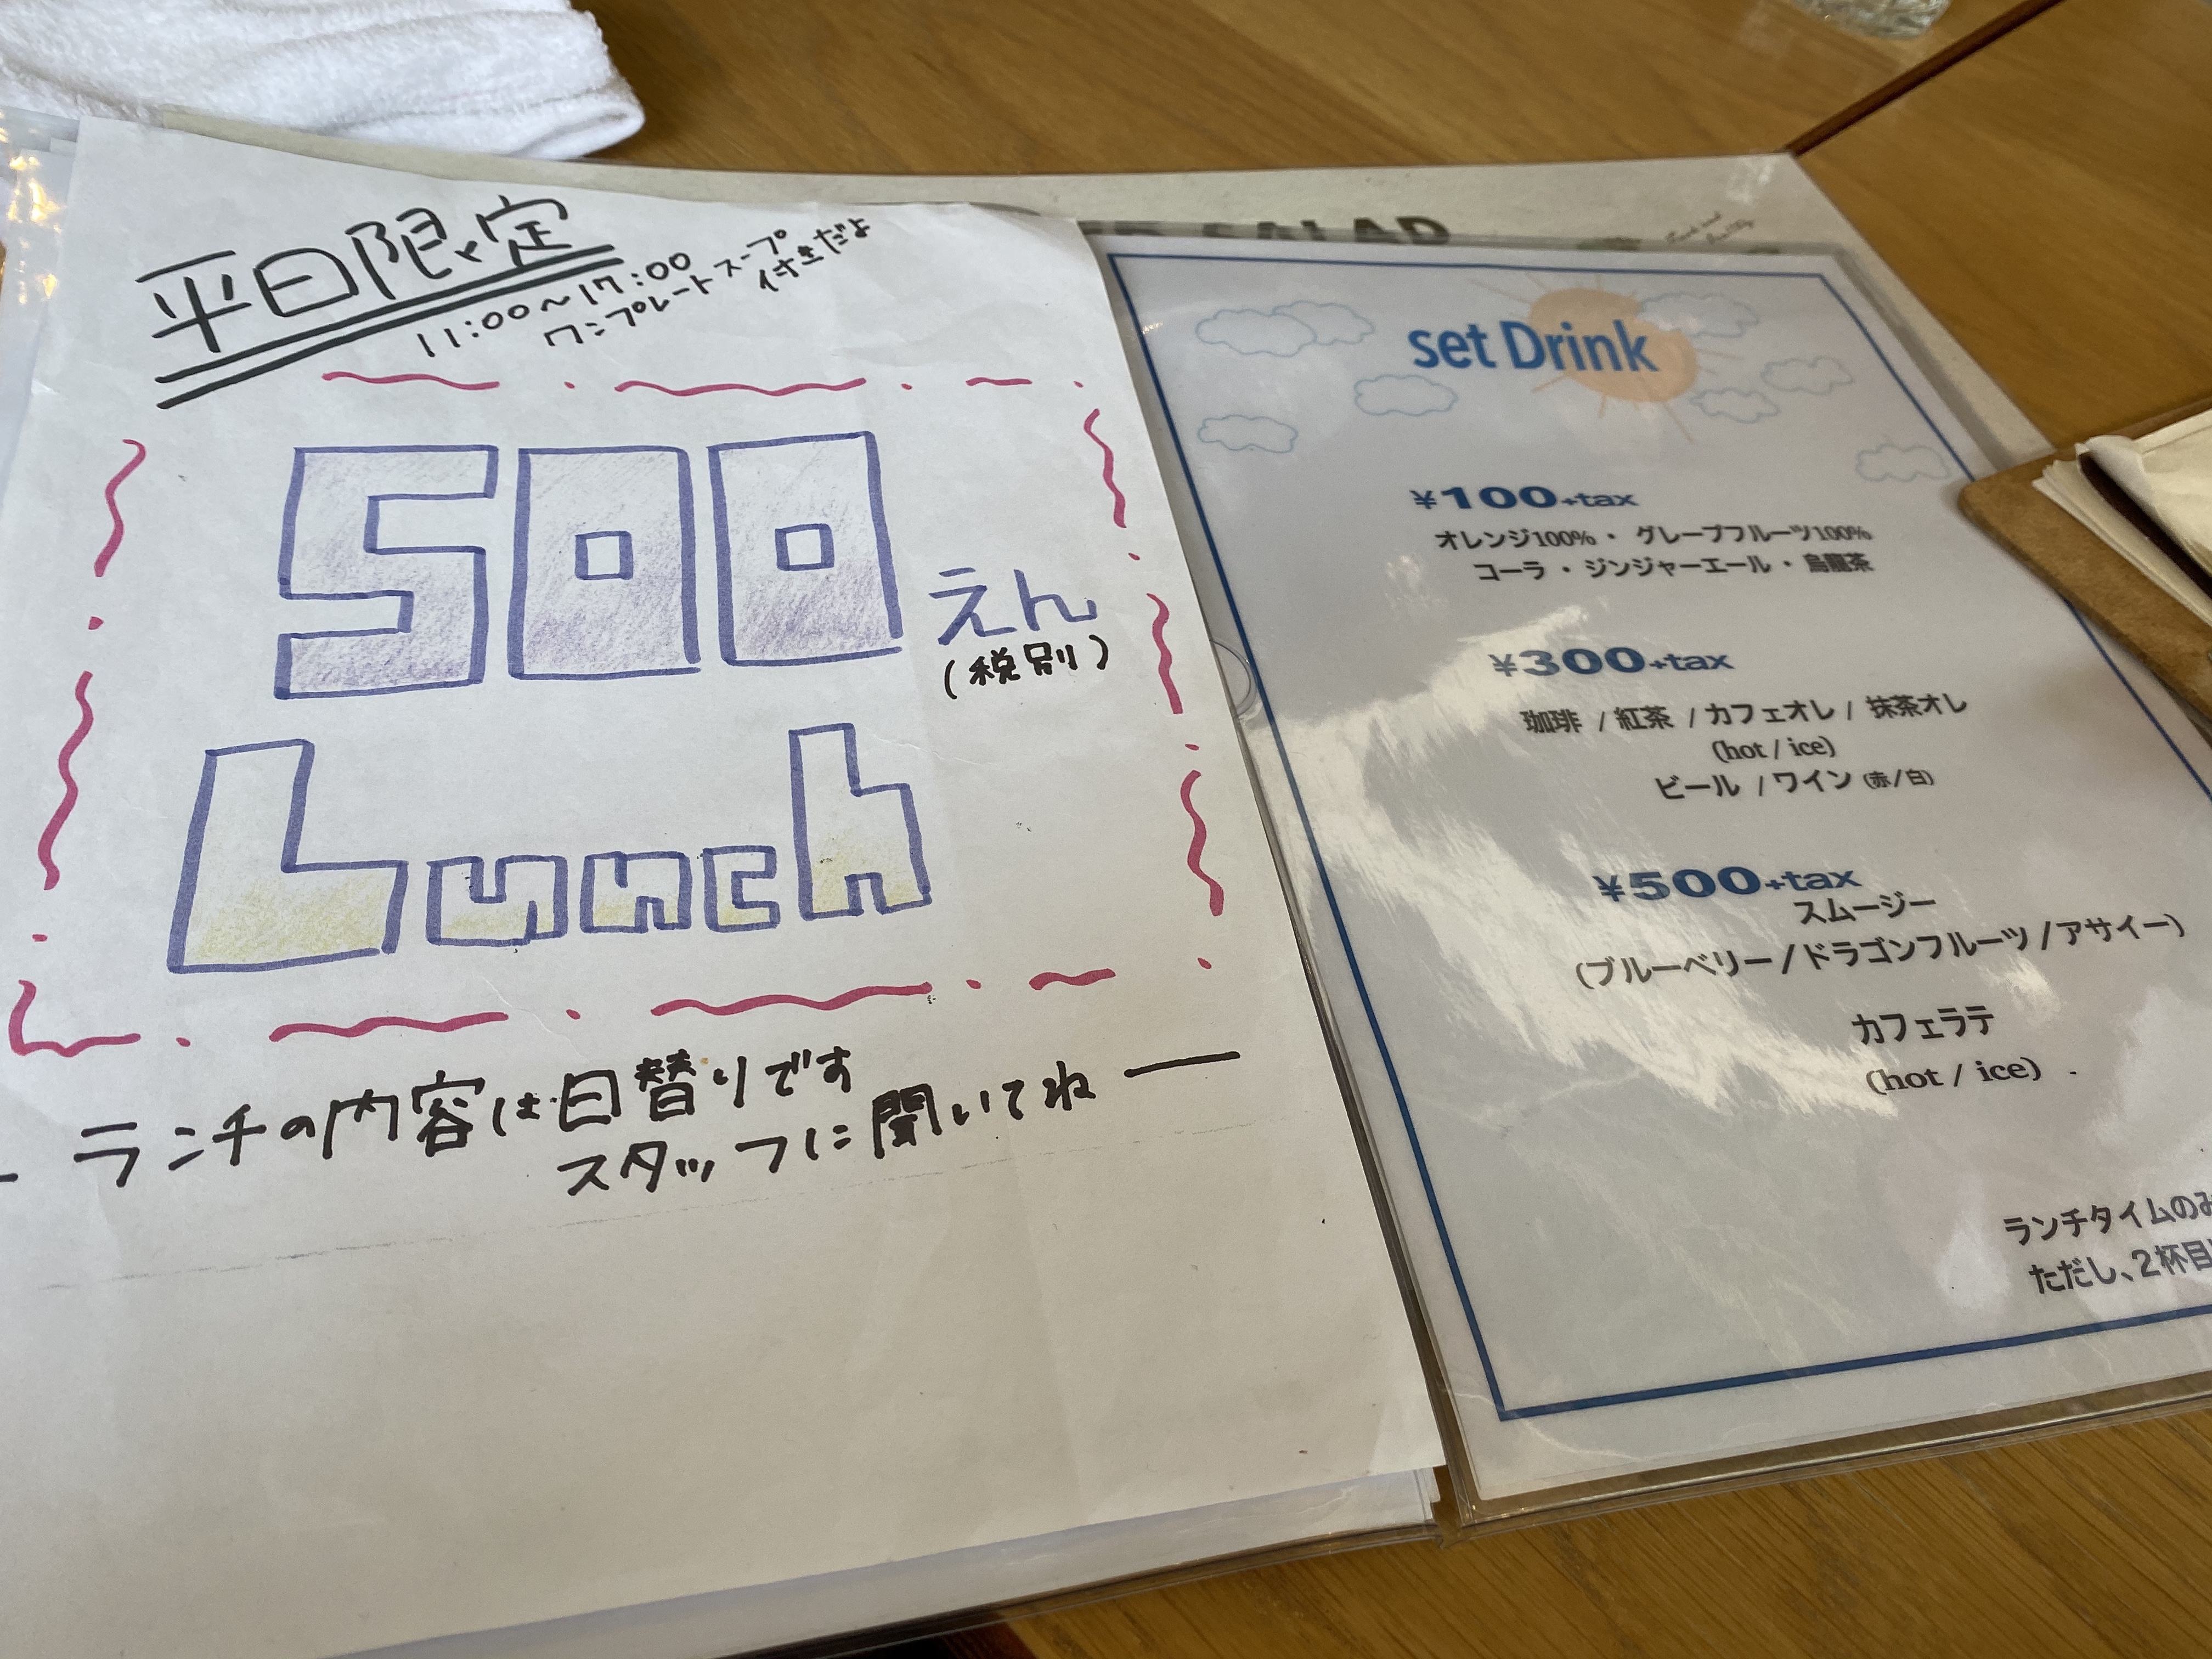 平日限定
11:00〜17:00
ワンプレート スープ
付きだよ
500えん
(税別)
Lunch
ランチの内容は日替りです
スタッフに聞いてねー
SALAD
set Drink
¥100+tax
オレンジ100%・グレープフルーツ100%
コーラ・ジンジャーエール・烏龍茶
¥300+tax
珈琲 / 紅茶 / カフェオレ / 抹茶オレ
(hot / ice)
ビール / ワイン (赤/白)
¥500+tax
スムージー
(ブルーベリー/ドラゴンフルーツ/アサイー)
カフェラテ
(hot / ice)
ランチタイムのみ
ただし、2杯目